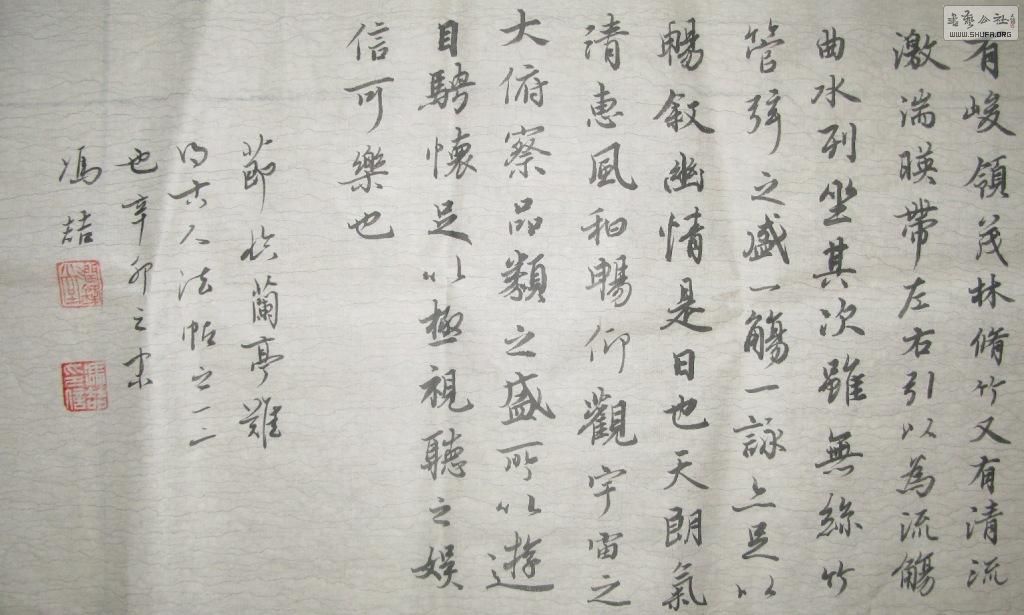 有峻領茂林脩竹又有清流
激湍暎帶左右引以為流觴
曲水列坐其次雖無絲竹
管弦之盛一觴一詠亦足以
暢敘幽情是日也天朗氣
清惠風和暢仰觀宇宙之
大俯察品類之盛所以遊
目騁懷足以極視聽之娛
信可樂也
節臨蘭亭難
得古人法帖之一二
也辛卯之
馮喆
書藝公社
WWW.SHUFA.ORG